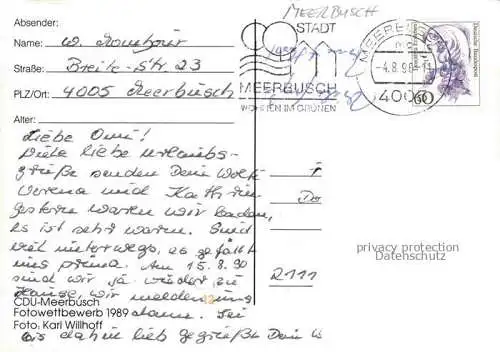 MEERBUSCH
Absender:
Name: W.
Straße: Breite-Str. 23
PLZ/Ort: 4005 Meerbusch
Alter:
STADT
MEERBUSCH
WOHNEN IM GRÜNEN
MEERBUSCH
-4.8.90-11
4005
Deutsche Bundespost
60
Liebe Omi!
Viele liebe Urlaubs-
grüße senden Dein Wolf
Verena und Kathrin
Gestern waren wir baden,
es ist sehr warm. Sind
viel unterwegs, es gefällt
uns prima. Am 15.8.90
sind wir ja wieder zu
Hause, wir melden uns
dann. Sei
bis dahin lieb gegrüßt Dein W
CDU-Meerbusch
Fotowettbewerb 1989
Foto: Karl Willhoff
F
Do
2111
privacy protection
Datenschutz